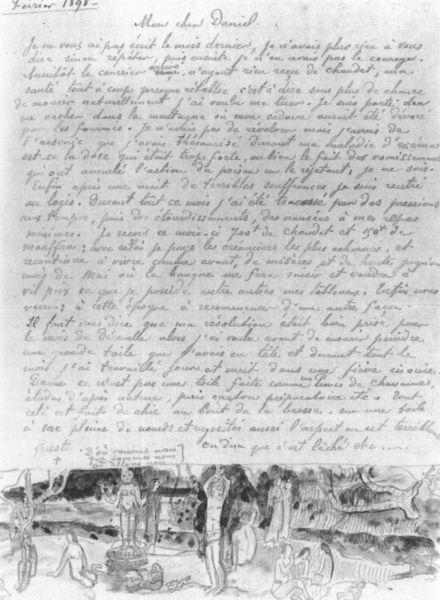 Février 1898 -
Mon cher Daniel.
Je ne vous ai pas écrit le mois dernier, je n'avais plus rien à vous
dire sinon répéter, puis ensuite je n'en avais pas le courage.
Aussitôt le courrier arrivé, n'ayant rien reçu de Chaudet, ma
santé tout à coup presque rétablie, c'est à dire sans plus de chance
de mourir naturellement j'ai voulu me tuer. Je suis parti
me cacher dans la montagne où mon cadavre aurait été dévoré
par les fourmis. Je n'avais pas de révolver mais j'avais de
l'arsenic que j'avais thésaurisé durant ma maladie d'eczéma
est-ce la dose qui était trop forte, ou bien le fait des vomissements
qui ont annulé l'action du poison en le rejetant, je ne sais.
Enfin après une nuit de terribles souffrances je suis rentré
au logis. Durant tout ce mois j'ai été tracassé par des pressions
aux tempes, puis des étourdissements, des nausées à mes repas
minimes. Je reçois ce mois-ci 700f de Chaudet et 150f de
Mauffra: avec cela je paye les créanciers les plus acharnés, et
recontinue à vivre comme avant de misères et de honte jusqu'au
mois de Mai où la banque me fera saisir et vendre à
vil prix ce que je possède entre autres mes tableaux. Enfin nous
verrons à cette époque à recommencer d'une autre façon.
Il faut vous dire que ma résolution était bien prise pour
le mois de décembre alors j'ai voulu avant de mourir peindre
une grande toile que j'avais en tête et durant tout le
mois j'ai travaillé jour et nuit dans une fièvre inouïe.
Dame ce n'est pas une toile faite comme un Puvis de Chavannes,
études d'après nature, puis carton préparatoire etc. Tout
cela est fait de chic au bout de la brosse, sur une toile
à sac pleine de noeuds et rugosités aussi l'aspect en est terriblement
fruste.
On dira que c'est lâché etc....
D'où venons nous
que sommes nous
où allons nous